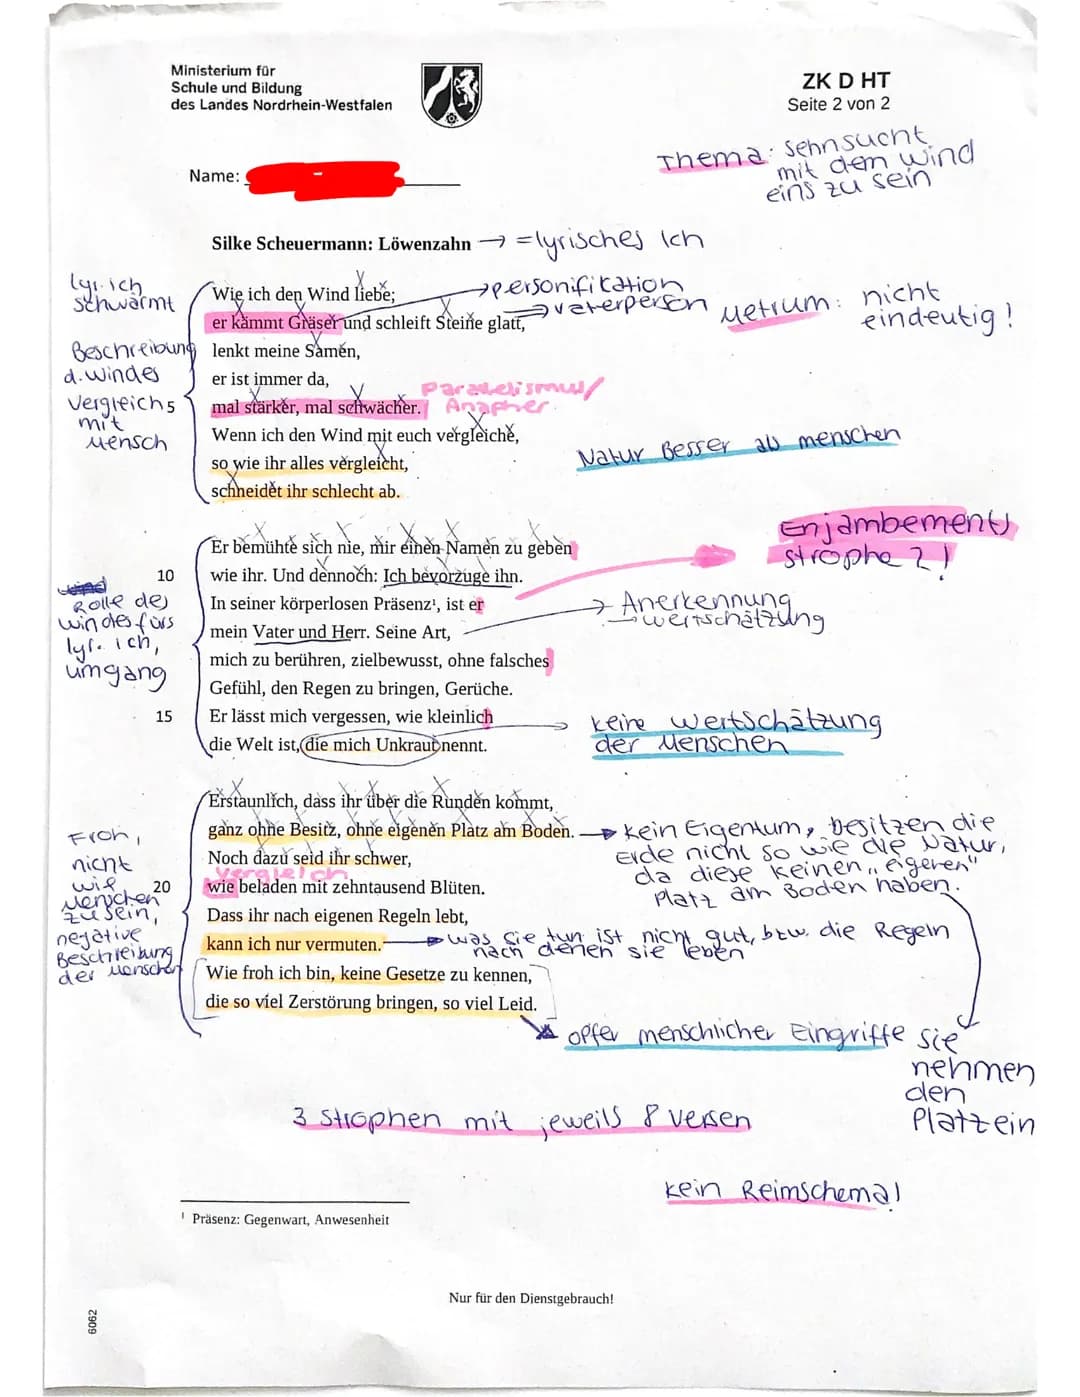 Ministerium für
Schule und Bildung
des Landes Nordrhein-Westfalen
ZK D HT
Seite 2 von 2
Thema: Sehnsucht
mit dem Wind
eins zu sein
Name:
Silke Scheuermann: Löwenzahn → =lyrisches Ich
lyr. ich
schwärmt
Beschreibung
d. Windes
Vergleich
mit
Mensch
Wie ich den Wind liebe;
→personifikation
⇒vaterperson
Metrum: nicht
eindeutig!
er kämmt Gräser und schleift Steine glatt,
lenkt meine Samen,
er ist immer da,
Paralelismus/
Anapher
5
mal stärker, mal schwächer.
Wenn ich den Wind mit euch vergleiche,
Natur Besser als menschen
so wie ihr alles vergleicht,
schneidet ihr schlecht ab.
Enjambements
strophe 2!
Er bemühte sich nie, mir einen Namen zu geben
10 wie ihr. Und dennoch: Ich bevorzuge ihn.
Rolle des
windes fürs
lyr. ich,
umgang
In seiner körperlosen Präsenz¹, ist er
→ Anerkennung
→wertschätzung
mein Vater und Herr. Seine Art,
mich zu berühren, zielbewusst, ohne falsches
Gefühl, den Regen zu bringen, Gerüche.
15 Er lässt mich vergessen, wie kleinlich
keine Wertschätzung
der Menschen
die Welt ist, die mich Unkraut nennt.
Erstaunlich, dass ihr über die Runden kommt,
ganz ohne Besitz, ohne eigenen Platz am Boden.
→ kein Eigentum, besitzen die
Erde nicht so wie die Natur,
da diese keinen „eigenen"
Platz am Boden haben.
Froh,
nicht
wie
Menschen
zu sein,
negative
Beschreibung
der Menschen
Noch dazu seid ihr schwer,
Vergleich
20 wie beladen mit zehntausend Blüten.
Dass ihr nach eigenen Regeln lebt,
kann ich nur vermuten.
→ was sie tun ist nicht gut, bzw. die Regeln
nach denen sie leben
Wie froh ich bin, keine Gesetze zu kennen,
die so viel Zerstörung bringen, so viel Leid.
opfer menschlicher Eingriffe
sie
nehmen
den
Platz ein
3 Strophen mit jeweils 8 Versen
kein Reimschema!
¹ Präsenz: Gegenwart, Anwesenheit
Nur für den Dienstgebrauch!
6062